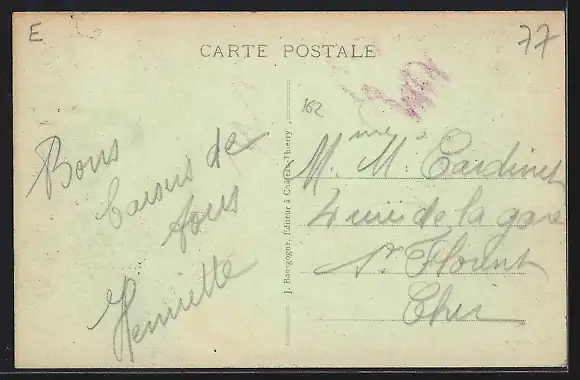 E
77
CARTE POSTALE
162
Bons
baisers de
tous
Henriette
J. Bourgogne, Éditeur à Château-Thierry
M. M.me Cardinet
4 rue de la gare
St Florent
Cher